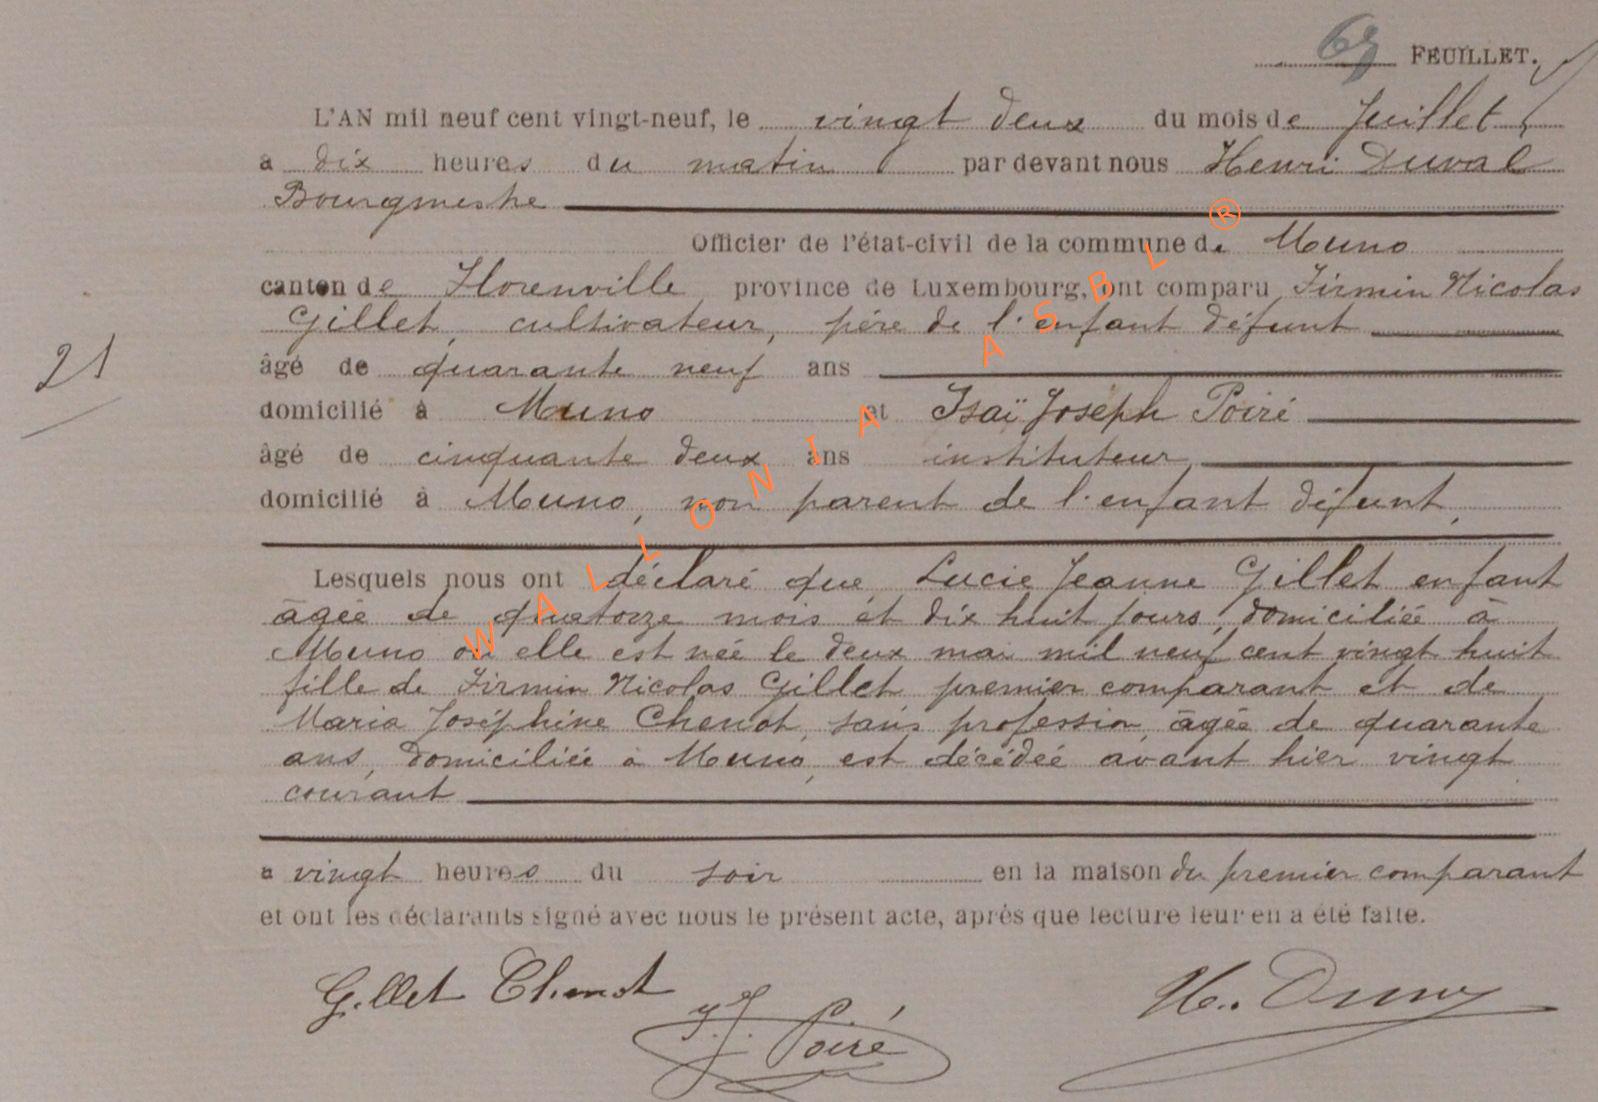 63 FEUILLET.
L'AN mil neuf cent vingt-neuf, le vingt deux du mois de Juillet,
a dix heures du matin par devant nous Henri Duval
Bourgmestre
Officier de l'état-civil de la commune de Muno
canton de Florenville province de Luxembourg, ont comparu Firmin Nicolas
Gillet, cultivateur, père de l'enfant défunt
âgé de quarante neuf ans
21
domicilié à Muno et Isaï Joseph Poiré
âgé de cinquante deux ans instituteur,
domicilié à Muno, non parent de l'enfant défunt,
Lesquels nous ont déclaré que Lucie Jeanne Gillet enfant
âgée de quatorze mois et dix huit jours, domiciliée à
Muno où elle est née le deux mai mil neuf cent vingt huit
fille de Firmin Nicolas Gillet premier comparant et de
Maria Joséphine Chenot, sans profession, âgée de quarante
ans, domiciliée à Muno, est décédée avant hier vingt
courant
a vingt heures du soir en la maison du premier comparant
et ont les déclarants signé avec nous le présent acte, après que lecture leur en a été faite.
Gillet Chenot
J. Poiré
H. Duval
WALLONIA ASBL ®